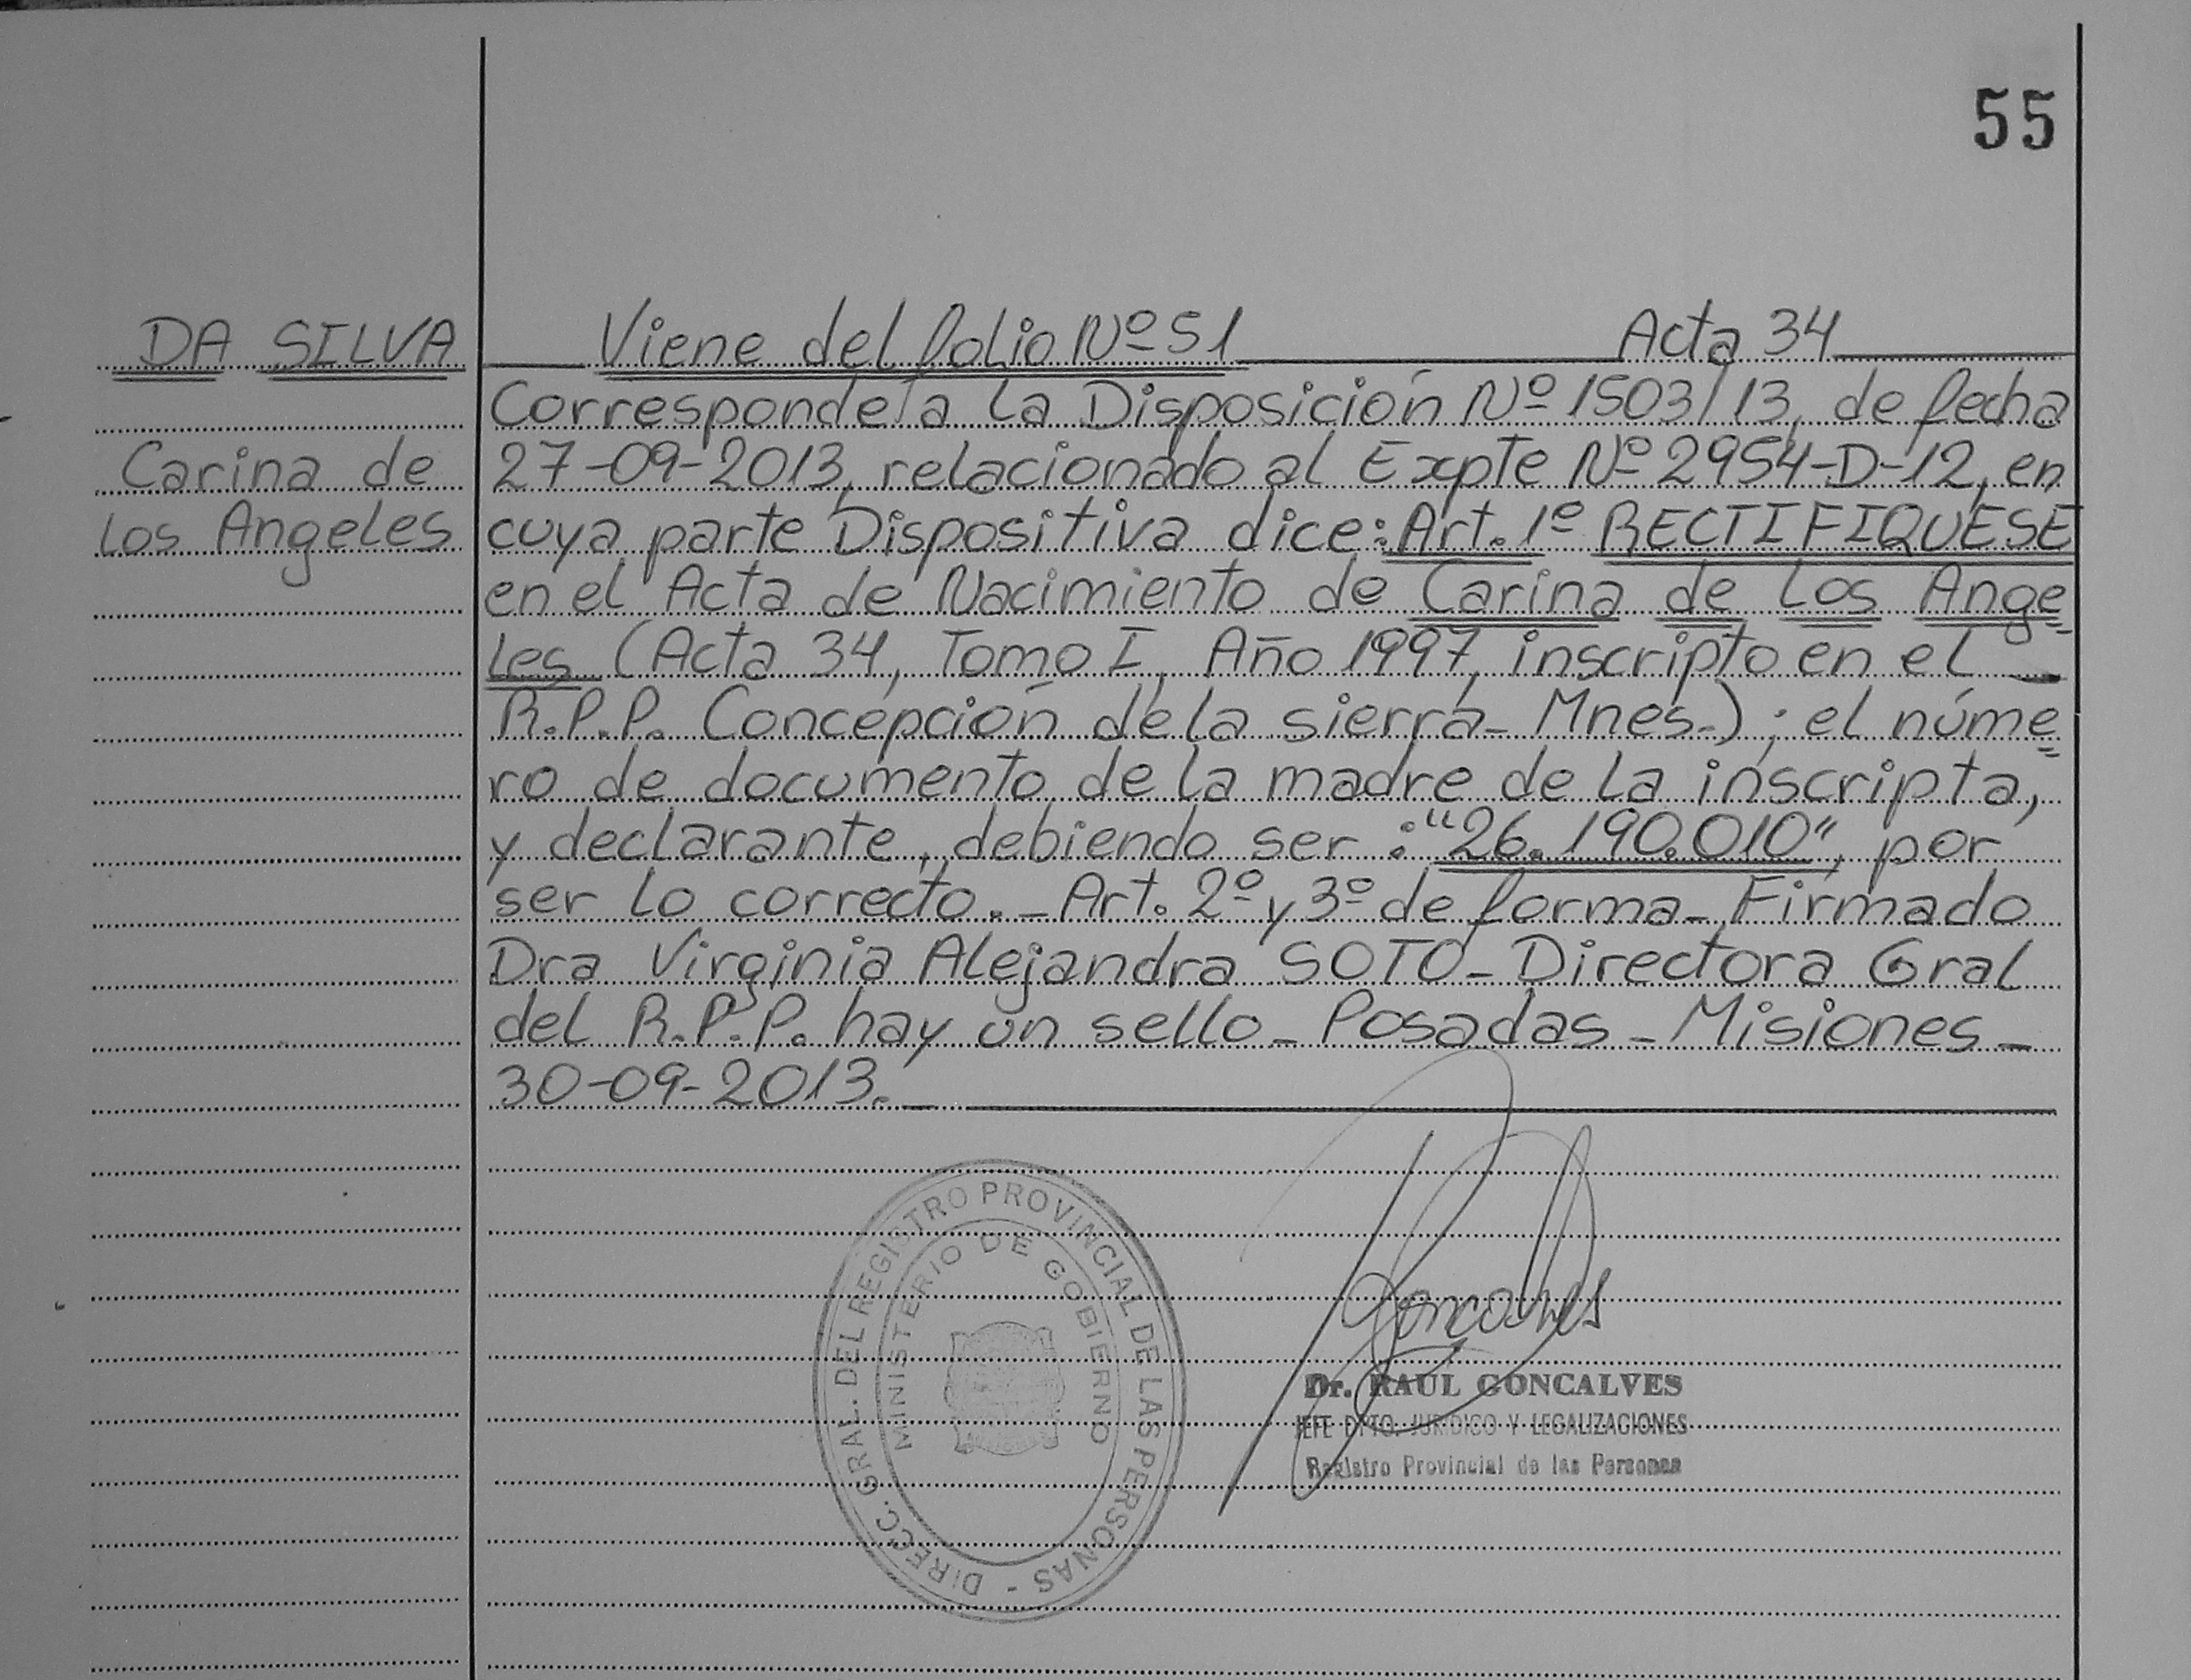 55
DA SILVA
Carina de
Los Angeles
Viene del folio Nº 51 Acta 34
Corresponde a la Disposición Nº 1503/13, de fecha
27-09-2013, relacionado al Expte Nº 2954-D-12, en
cuya parte Dispositiva dice: Art. 1º RECTIFIQUESE
en el Acta de Nacimiento de Carina de Los Ange=
les (Acta 34, Tomo I, Año 1997, inscripto en el _
R.P.P. Concepción de la sierra - Mnes.); el núme=
ro de documento de la madre de la inscripta,
y declarante, debiendo ser: "26.190.010", por
ser lo correcto._ Art. 2º y 3º de forma_ Firmado
Dra Virginia Alejandra SOTO_ Directora Gral
del R.P.P. hay un sello_ Posadas_ Misiones_
30-09-2013._
DIRECC. GRAL. DEL REGISTRO PROVINCIAL DE LAS PERSONAS -
MINISTERIO DE GOBIERNO
Goncalves
Dr. RAUL GONCALVES
JEFE DPTO. JURIDICO Y LEGALIZACIONES
Registro Provincial de las Personas